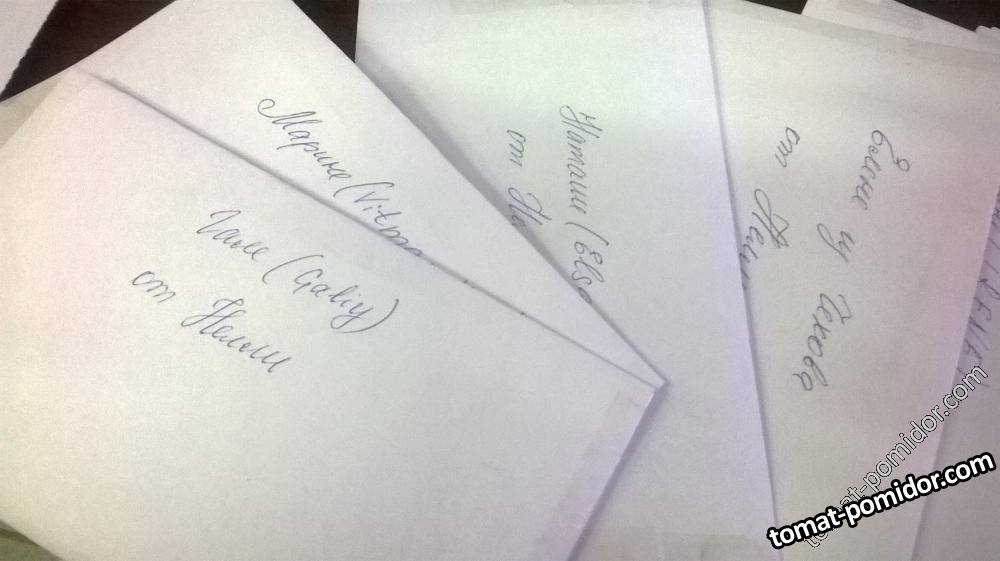 Гале (Galiy)
от Нелли
Марине (Vitps
Наташи (Elso
от Не
Елене
от Нелли
tomat-pomidor.com
tomat-pomidor.com